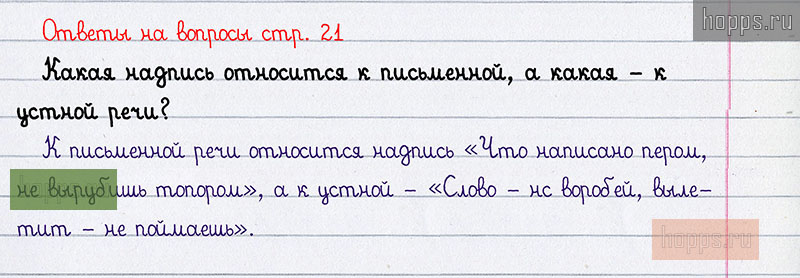 hopps.ru
Ответы на вопросы стр. 21
Какая надпись относится к письменной, а какая – к
устной речи?
К письменной речи относится надпись «Что написано пером,
не вырубишь топором», а к устной – «Слово – нс воробей, выле–
тит – не поймаешь».
hopps.ru